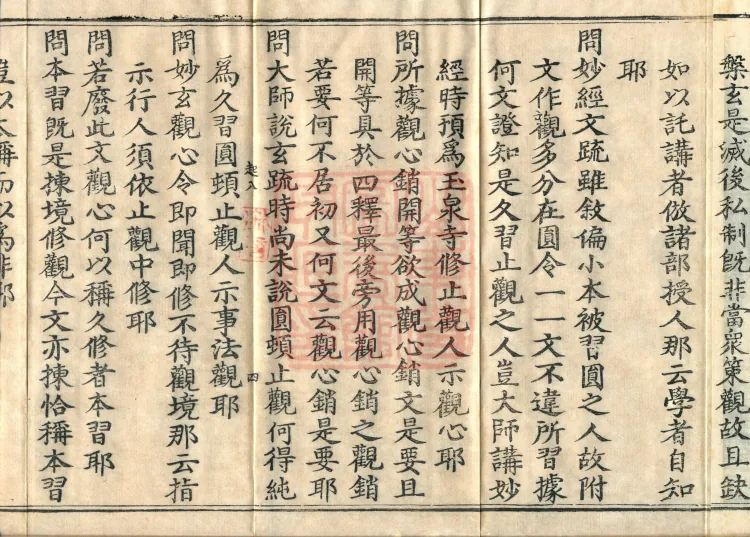 槃玄是滅後私制旣非當衆策觀故且缺
如以託講者倣諸部授人那云學者自知
耶
問妙經文疏雖敘偏小本被習圓之人故附
文作觀多分在圓令一一文不違所習據
何文證知是久習止觀之人豈大師講妙
經時預爲玉泉寺修止觀人示觀心耶
問所據觀心銷開等欲成觀心銷文是要且
開等具於四釋最後旁用觀心銷之觀銷
若要何不居初又何文云觀心銷是要耶
問大師說玄疏時尚未說圓頓止觀何得純
起八
四
爲久習圓頓止觀人示事法觀耶
問妙玄觀心令卽聞卽修不待觀境那云指
示行人須依止觀中修耶
問若廢此文觀心何以稱久修者本習耶
問本習旣是揀境修觀今文亦揀恰稱本習
豈以不稱而以爲非耶